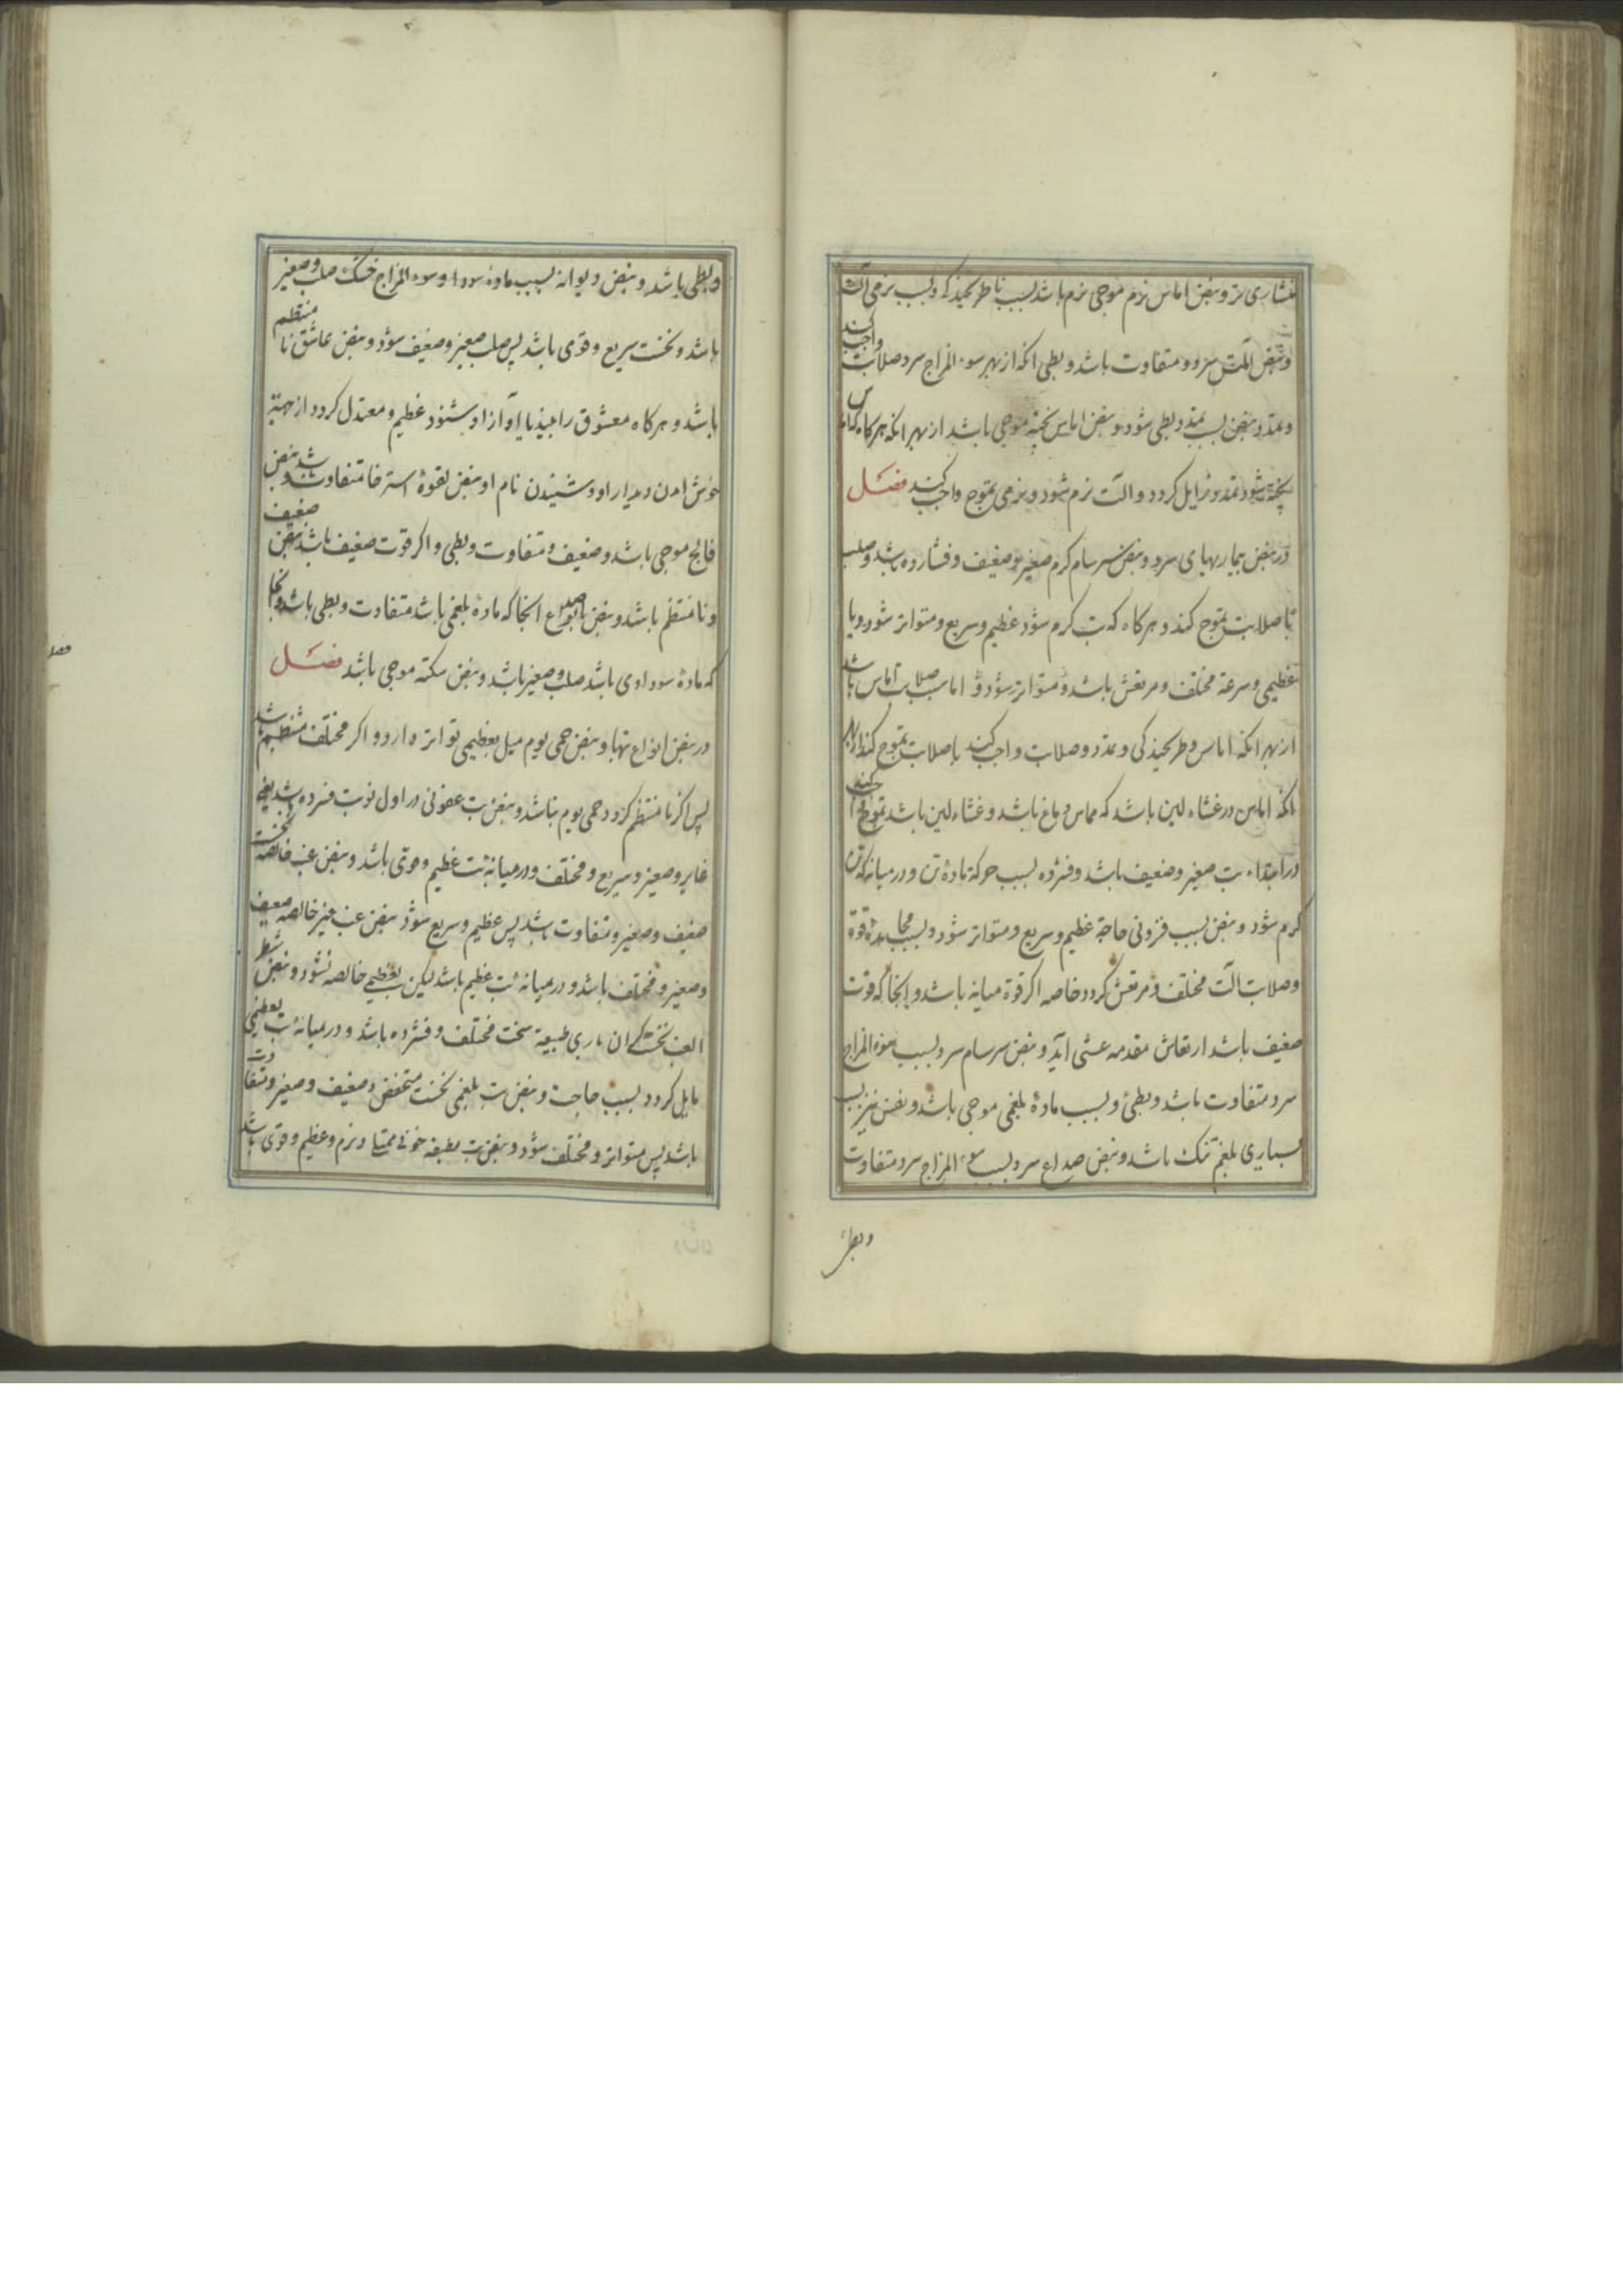 منشاری تر و نبض اماس نرم موجی نرم باشد بسبب ناطرنجیدکی و بسبب نرمی آلت
و نبض اماس سرد و متفاوت باشد و بطی انکه از بهر سوء المزاج سرد صلابت واجب کند
و تمدد و نبض بسبب تمدد بطی شود و نبض اماس پخته موجی باشد از بهر انکه هرکاه که اماس
پخته شود تمدد زایل کردد و الت نرم شود و نرمی تموج واجب کند فصل
در نبض بیماریهای سرد و نبض سرسام کرم صغیر و ضعیف و فشارده باشد و صلب
با صلابت تموج کند و هرکاه که تب کرم شود عظیم و سریع و متواتر شود و با
عظیمی و سرعة مختلف و مرتعش باشد و متواتر شود و اما سبب صلابت اماس باشد
از بهر انکه اماس و طرنجیدکی و تمدد و صلابت واجب کند با صلابت تموج کند از بهر
انکه اماس در غشاء لین باشد که مماس دماغ باشد و غشاء لین باشد تموج واجب کند
در ابتداء تب صغیر و ضعیف باشد و فشرده بسبب حرکة مادهٔ تن و در میانه که تن
کرم شود و نبض بسبب فزونی حاجة عظیم و سریع و متواتر شود و بسبب مجاهدة قوة
و صلابت آلت مختلف و مرتعش کردد خاصه اکر قوة میانه باشد و انجا که قوت
ضعیف باشد ارتعاش مقدمه غشی اید و نبض سرسام سرد بسبب سوء المزاج
سرد متفاوت باشد و بطئ و بسبب مادهٔ بلغمی موجی باشد و نفس نیز بسبب
بسیاری بلغم تنک باشد و نبض صداع سرد بسبب سوء المزاج سرد متفاوت
و بطی
و بطی باشد و نبض دیوانه بسبب مادهٔ سودا و سوء المزاج خشک صلب و صغیر
باشد و نخست سریع و قوی باشد پس صلب صغیر و ضعیف شود و نبض عاشق نا منتظم
باشد و هرکاه معشوق را بیند یا آواز او بشنود عظیم و معتدل کردد از جهة
خوش امدن دیدار او و شنیدن نام او و نبض لقوهٔ استرخا متفاوت باشد و نبض
فالج موجی باشد و ضعیف و متفاوت و بطی و اکر قوت ضعیف باشد نبض ضعیف
و نا منتظم باشد و نبض صرع انجا که مادهٔ بلغمی باشد متفاوت و بطی باشد و انجا
که مادهٔ سوداوی باشد صلب و صغیر باشد و نبض سکته موجی باشد فصل
در نبض انواع تبها و نبض حمی یوم میل بعظیمی تواتر دارد و اکر مختلف منتظم باشد
پس اکر نا منتظم کردد حمی یوم نباشد و نبض تب عفونی در اول نوبت فشرده باشد یعنی
غایر و صغیر و سریع و مختلف و در میانهٔ تب عظیم و قوی باشد و نبض غب خالصه نخست
ضعیف و صغیر و متفاوت باشد پس عظیم و سریع شود نبض غب غیر خالصه ضعیف
و صغیر و مختلف باشد و در میانهٔ تب عظیم باشد لیکن بعظیمی خالصه نشود و نبض شطر
الغب نخست کران باری طبیعة سخت مختلف و فشرده باشد و در میانهٔ تب بعظیمی
مایل کردد بسبب حاجت و نبض تب بلغمی نخست منخفض و ضعیف و صغیر و متفاوت
باشد پس متواتر و مختلف شود و نبض تب مطبقه خونی ممتلی و نرم و عظیم و قوی باشد